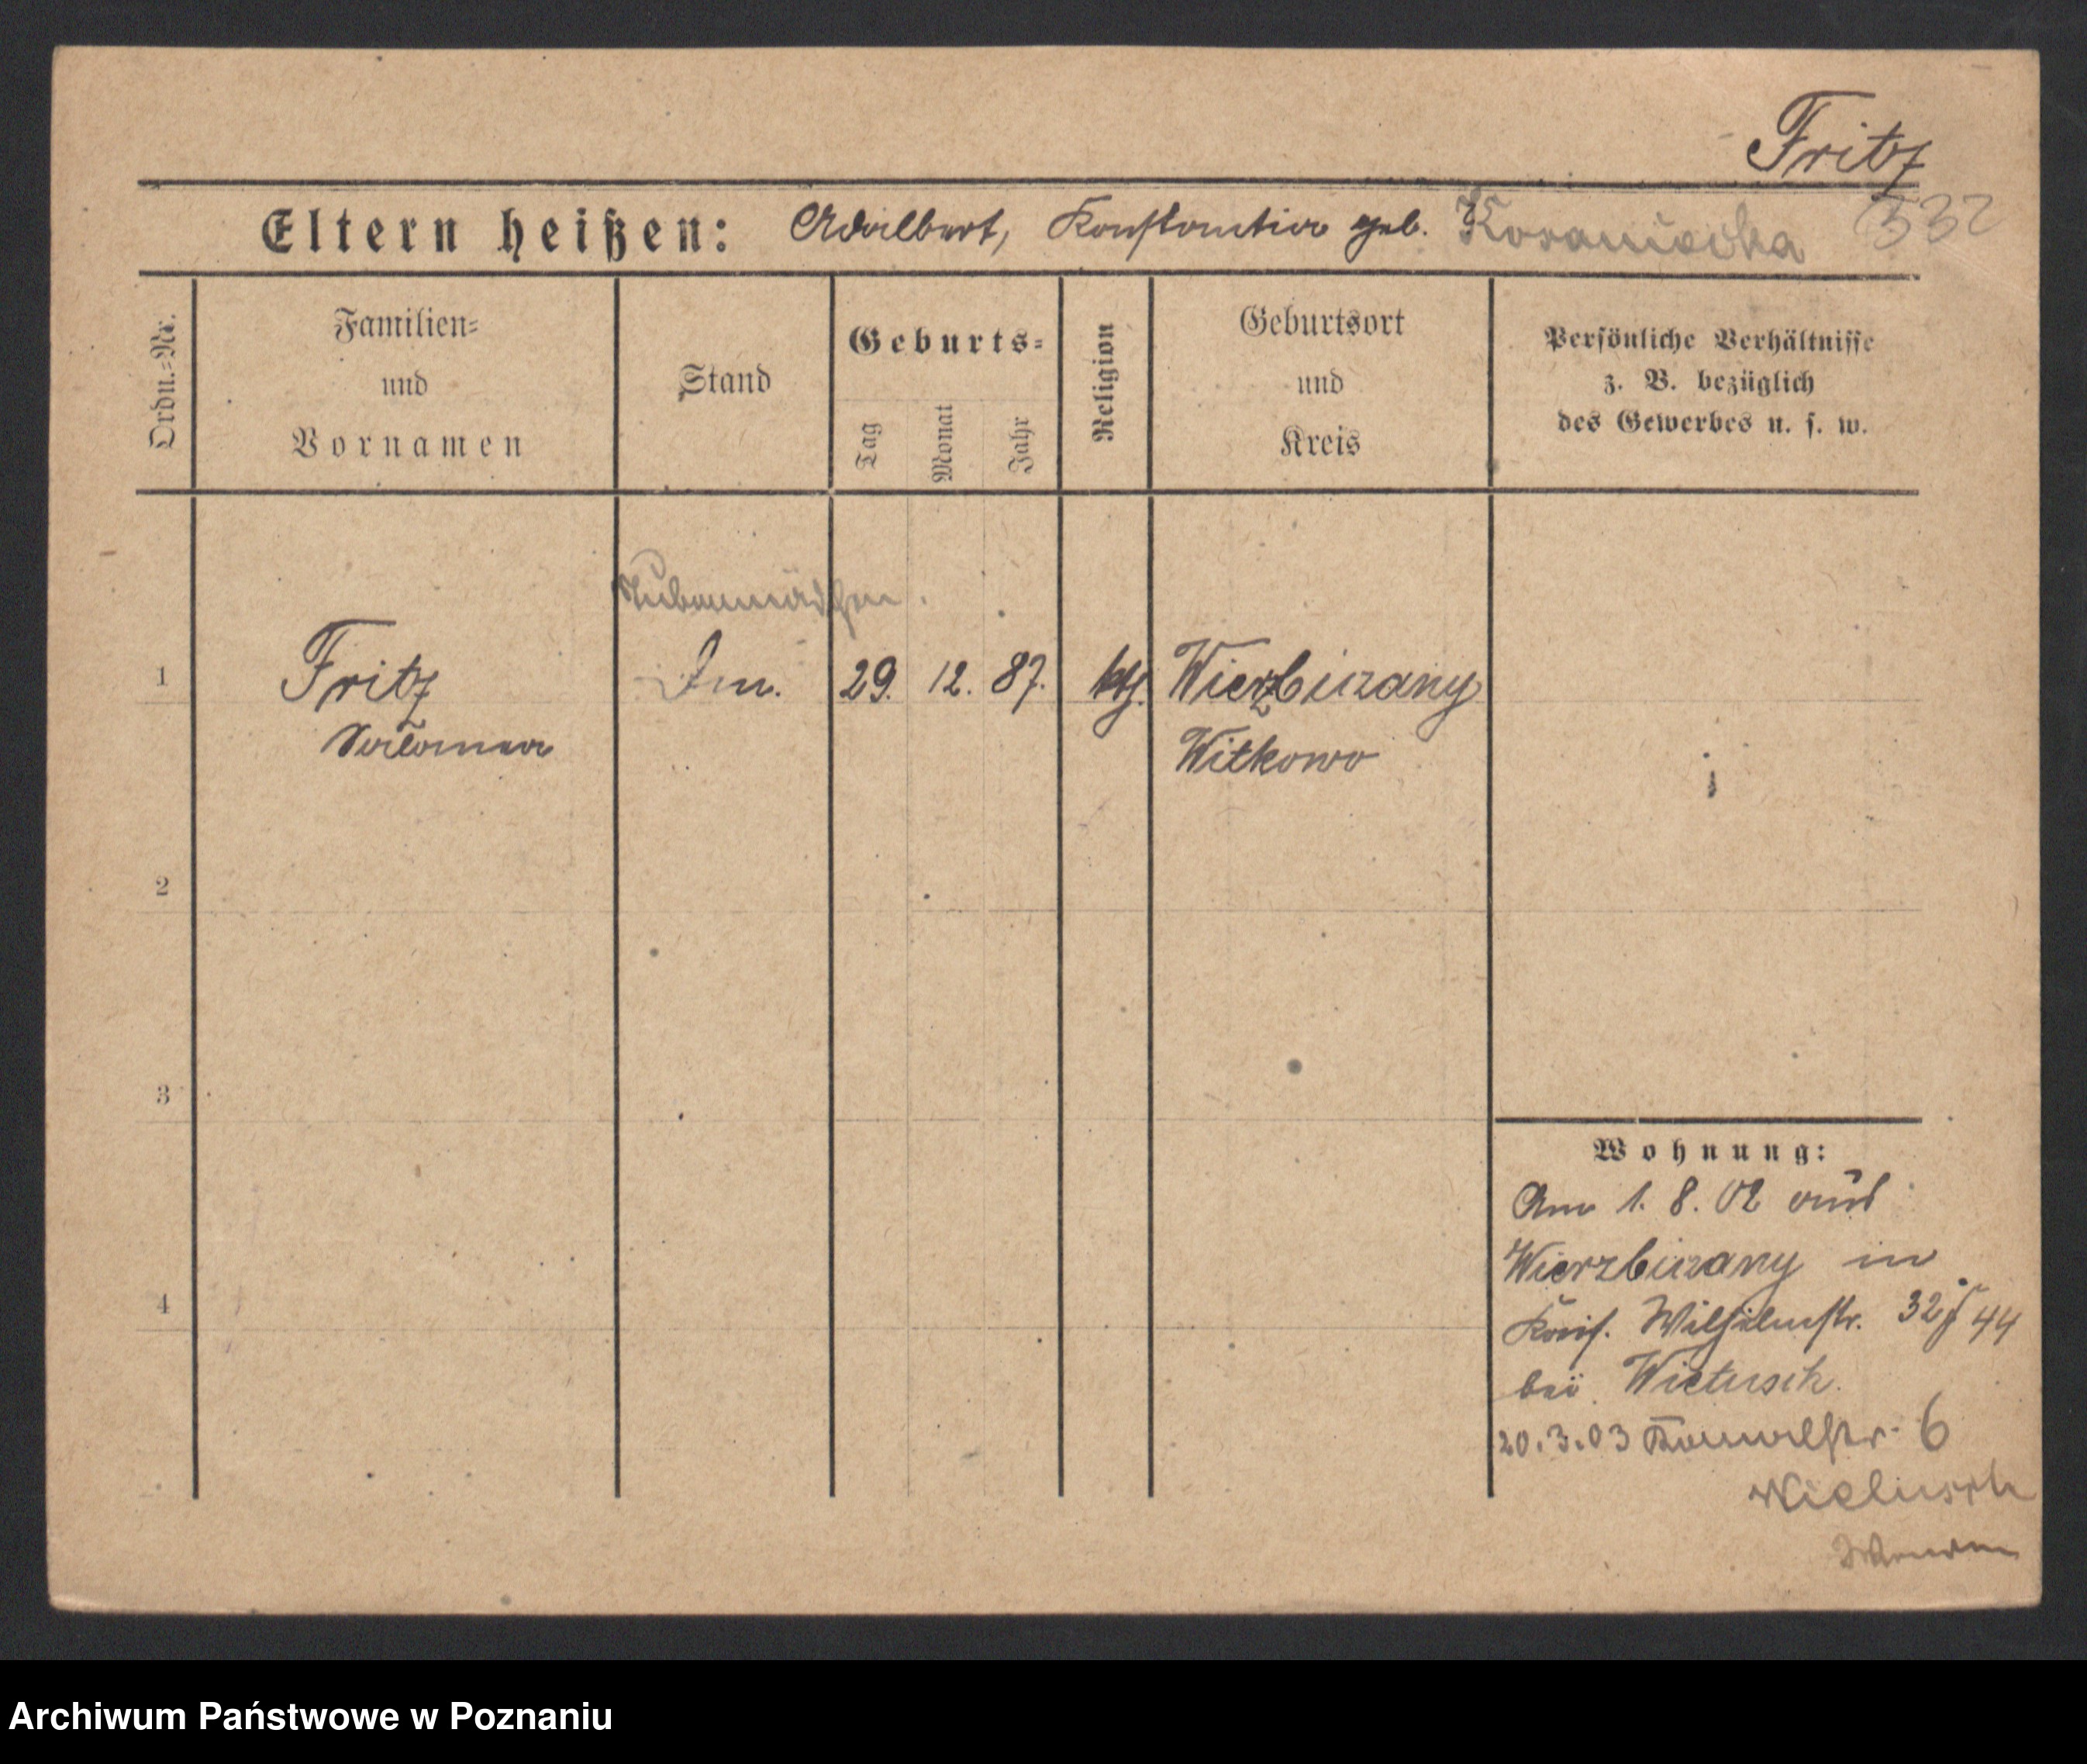 Fritz
Eltern heißen: Adalbert, Konstantia geb. 332
Ordn.-Nr.
Familien-
und
Vornamen
Stand
Geburts-
Tag
Monat
Jahr
Religion
Geburtsort
und
Kreis
Persönliche Verhältnisse
z. B. bezüglich
des Gewerbes u. s. w.
Stubenmädchen.
1 Fritz 29. 12. 87. kth. Wierzbiczany
Salomea Witkowo
2
3
4
Wohnung:
Am 1. 8. 02 aus
Wierzbiczany in
Wilhelmstr. 32 44
bei Wietusch.
20.3.03 Kanalstr. 6
Archiwum Państwowe w Poznaniu